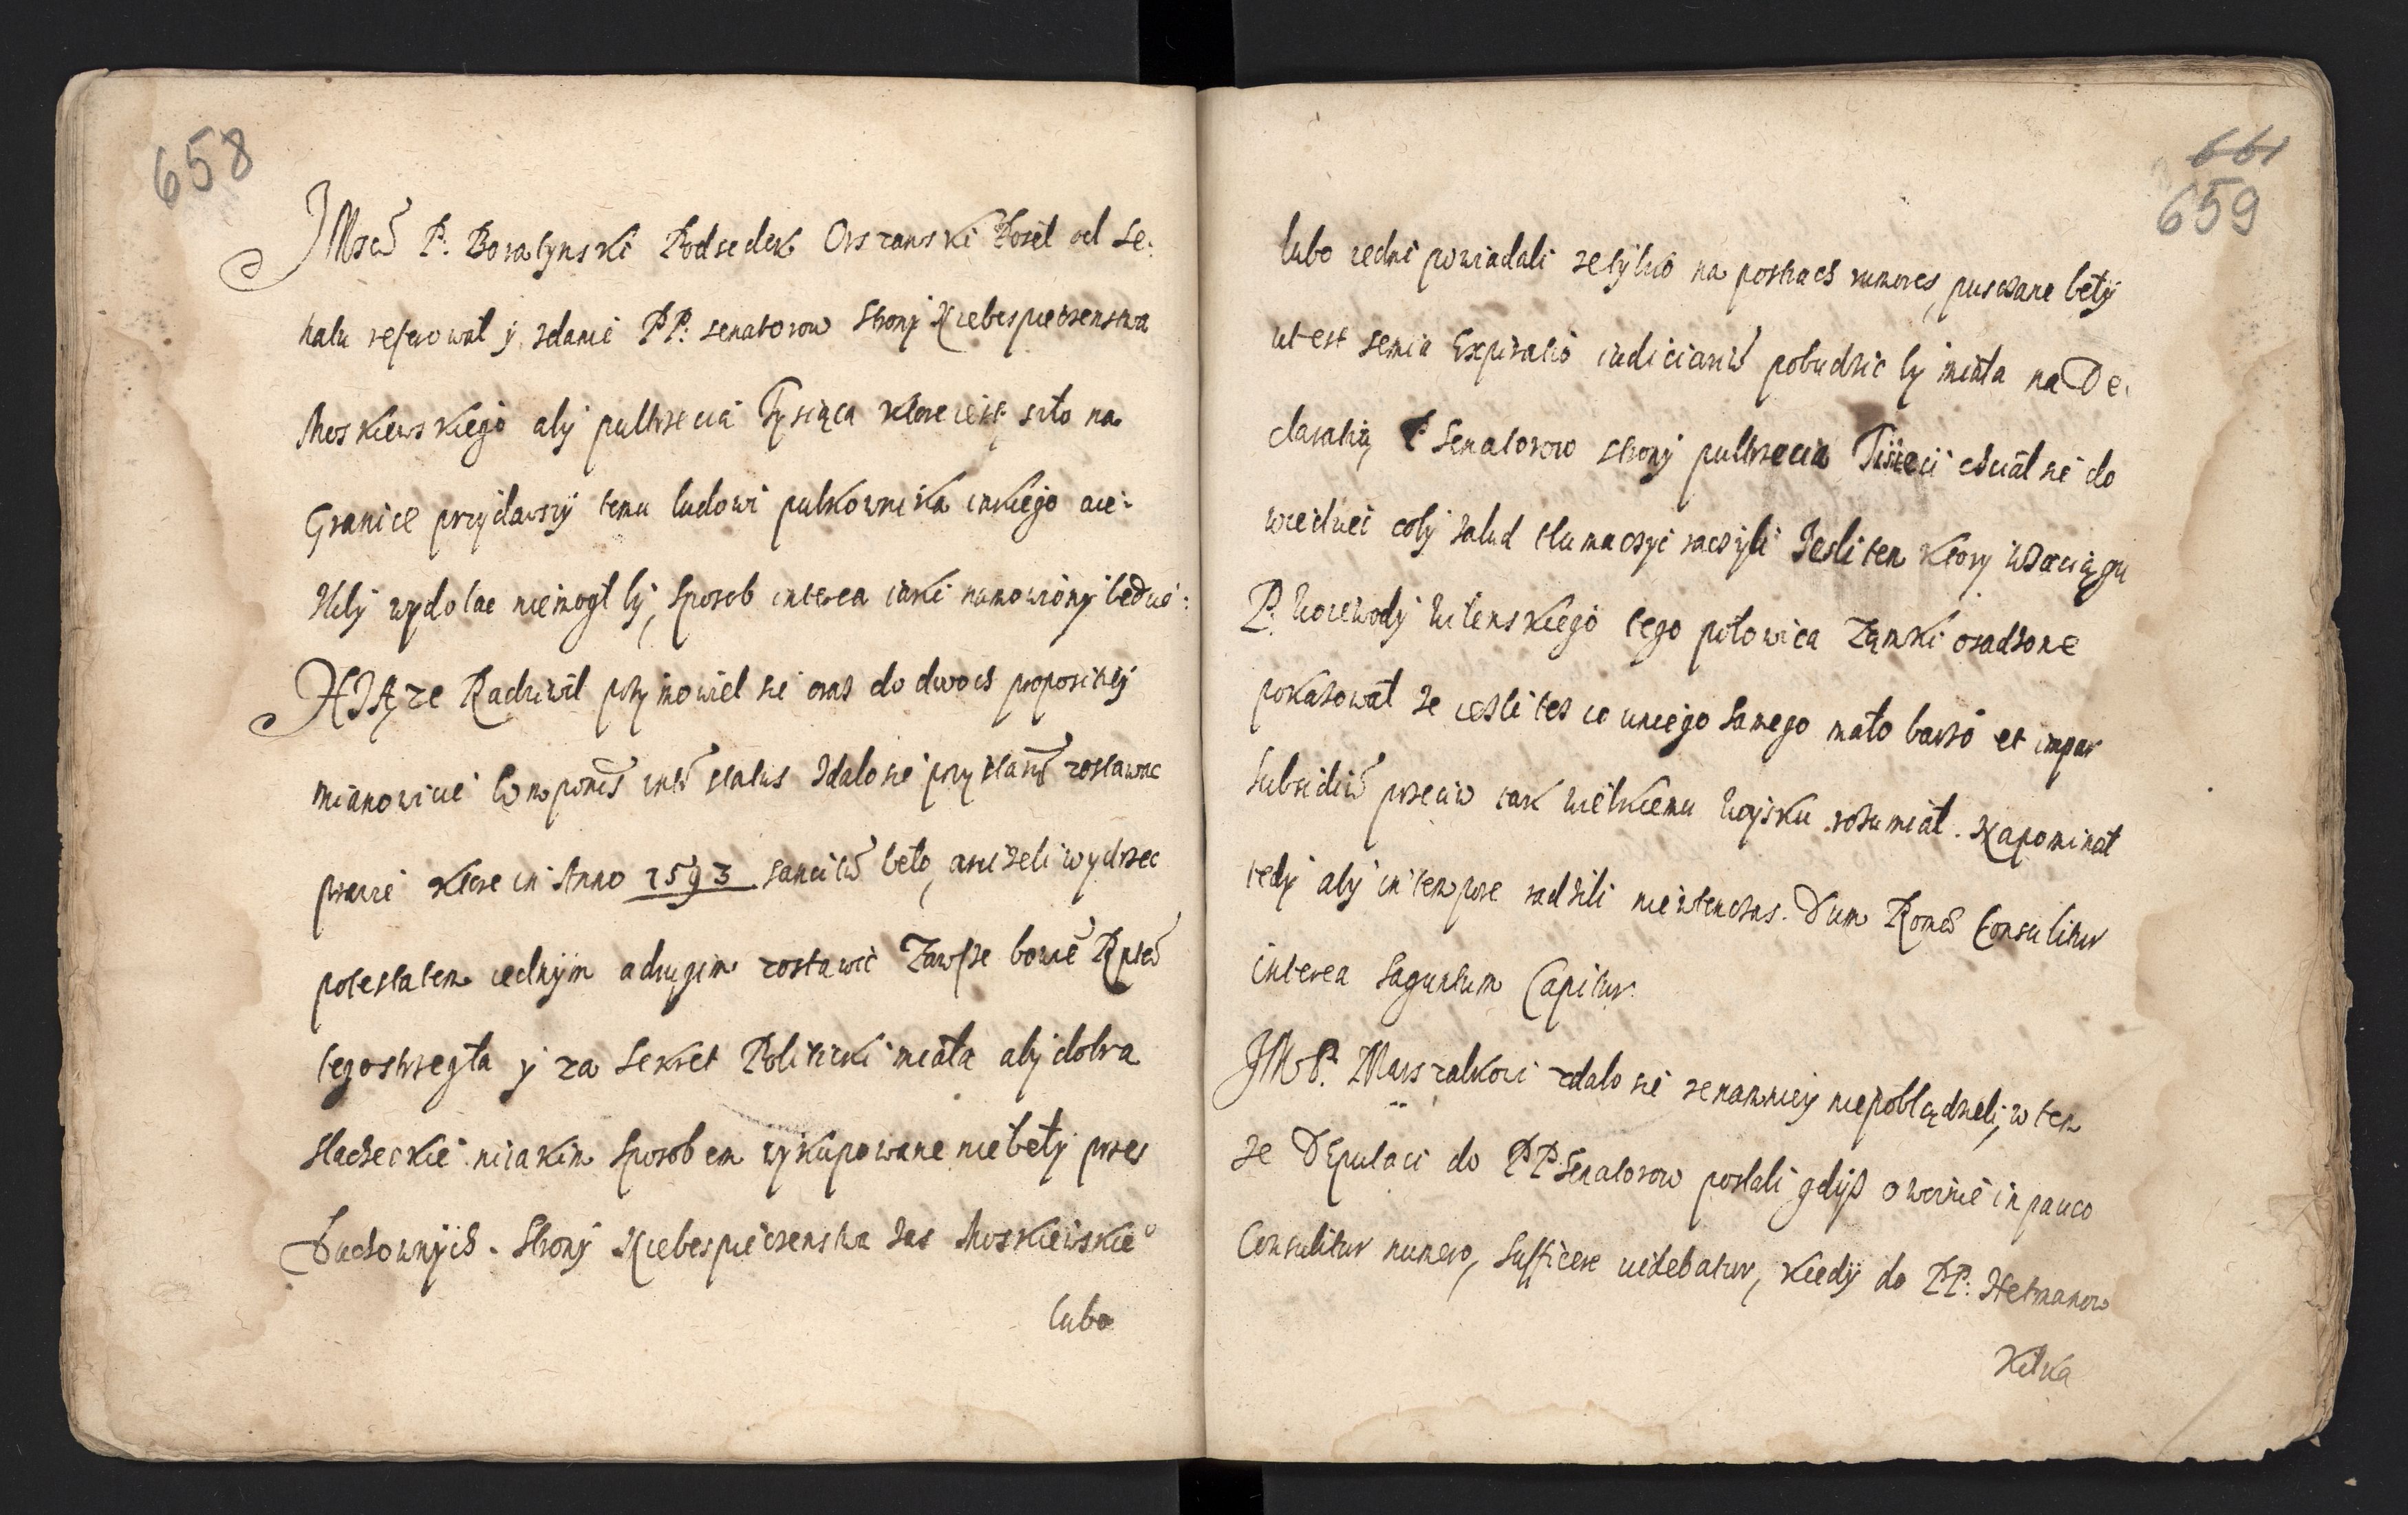 658
JMscẃ P. Boratynski Podsedek Orszanski Poseł od Se:
natu referował ÿ zdanie PP: senatorow Stronÿ Niebespieczenstwa
Moskiewskiego abÿ pułtrzecia Tÿsiąca ktore iest szło na
Granice prÿdawszÿ temu ludowi pułkownika inszego
wydołac niemogł bÿ, Sposob interea iaki namowionÿ bedzie:
XJĄze Radziwił przÿmowieł sie oraz do dwoch propositiÿ
mianowicie Componẽs inter status Zdalo sie przÿ starẽ zostawac
prawie ktore in Anno 1593 sancitũ beło, anizeli wydrzec
potestatem iednÿm a drugim zostawic Zawsze bowiẽ Rptẽ
tego strzegła ÿ za Sekret Politicki miała abÿ dobra
slacheckie niiakim sposobem wÿkupowane niebełÿ przes
Duchownÿch. Stronÿ Niebespieczenstwa zas Moskiewskie°
lubo
661
659
lubo iedni powiadali ze tÿlko na postrach rumores puszczane bełÿ
ut est Expiratio iudiciariũ pobudzic bÿ miała na De:
claratią P Senatorow stronÿ pułtrzecia Tisieci chciał sie do
wiedziec tlumaczÿc raczÿli Jesli ten ktorÿ w Zaciągu
P. Woiewodÿ Wilenskiego tego połowica Zamki osadzone
pokazował ze iesli tes co inszego samego mało barzo et impar
Subsidiũ przeciw tak wielkiemu Woÿsku rozumiał. Napominał
tedÿ abÿ in tempore radzili niewtenczas. Dum Romæ Consulitur
interea Saguntum Capitur.
JM P. Marszalkowi zdalo sie ze namnieÿ niepobłądzieli, w tem
ze DEputaci do PP Senatorow posłali gdÿsz in pauco
Consulitur numero, Sufficere uidebatur, kiedÿ do PP: Hetmanow
Kilka